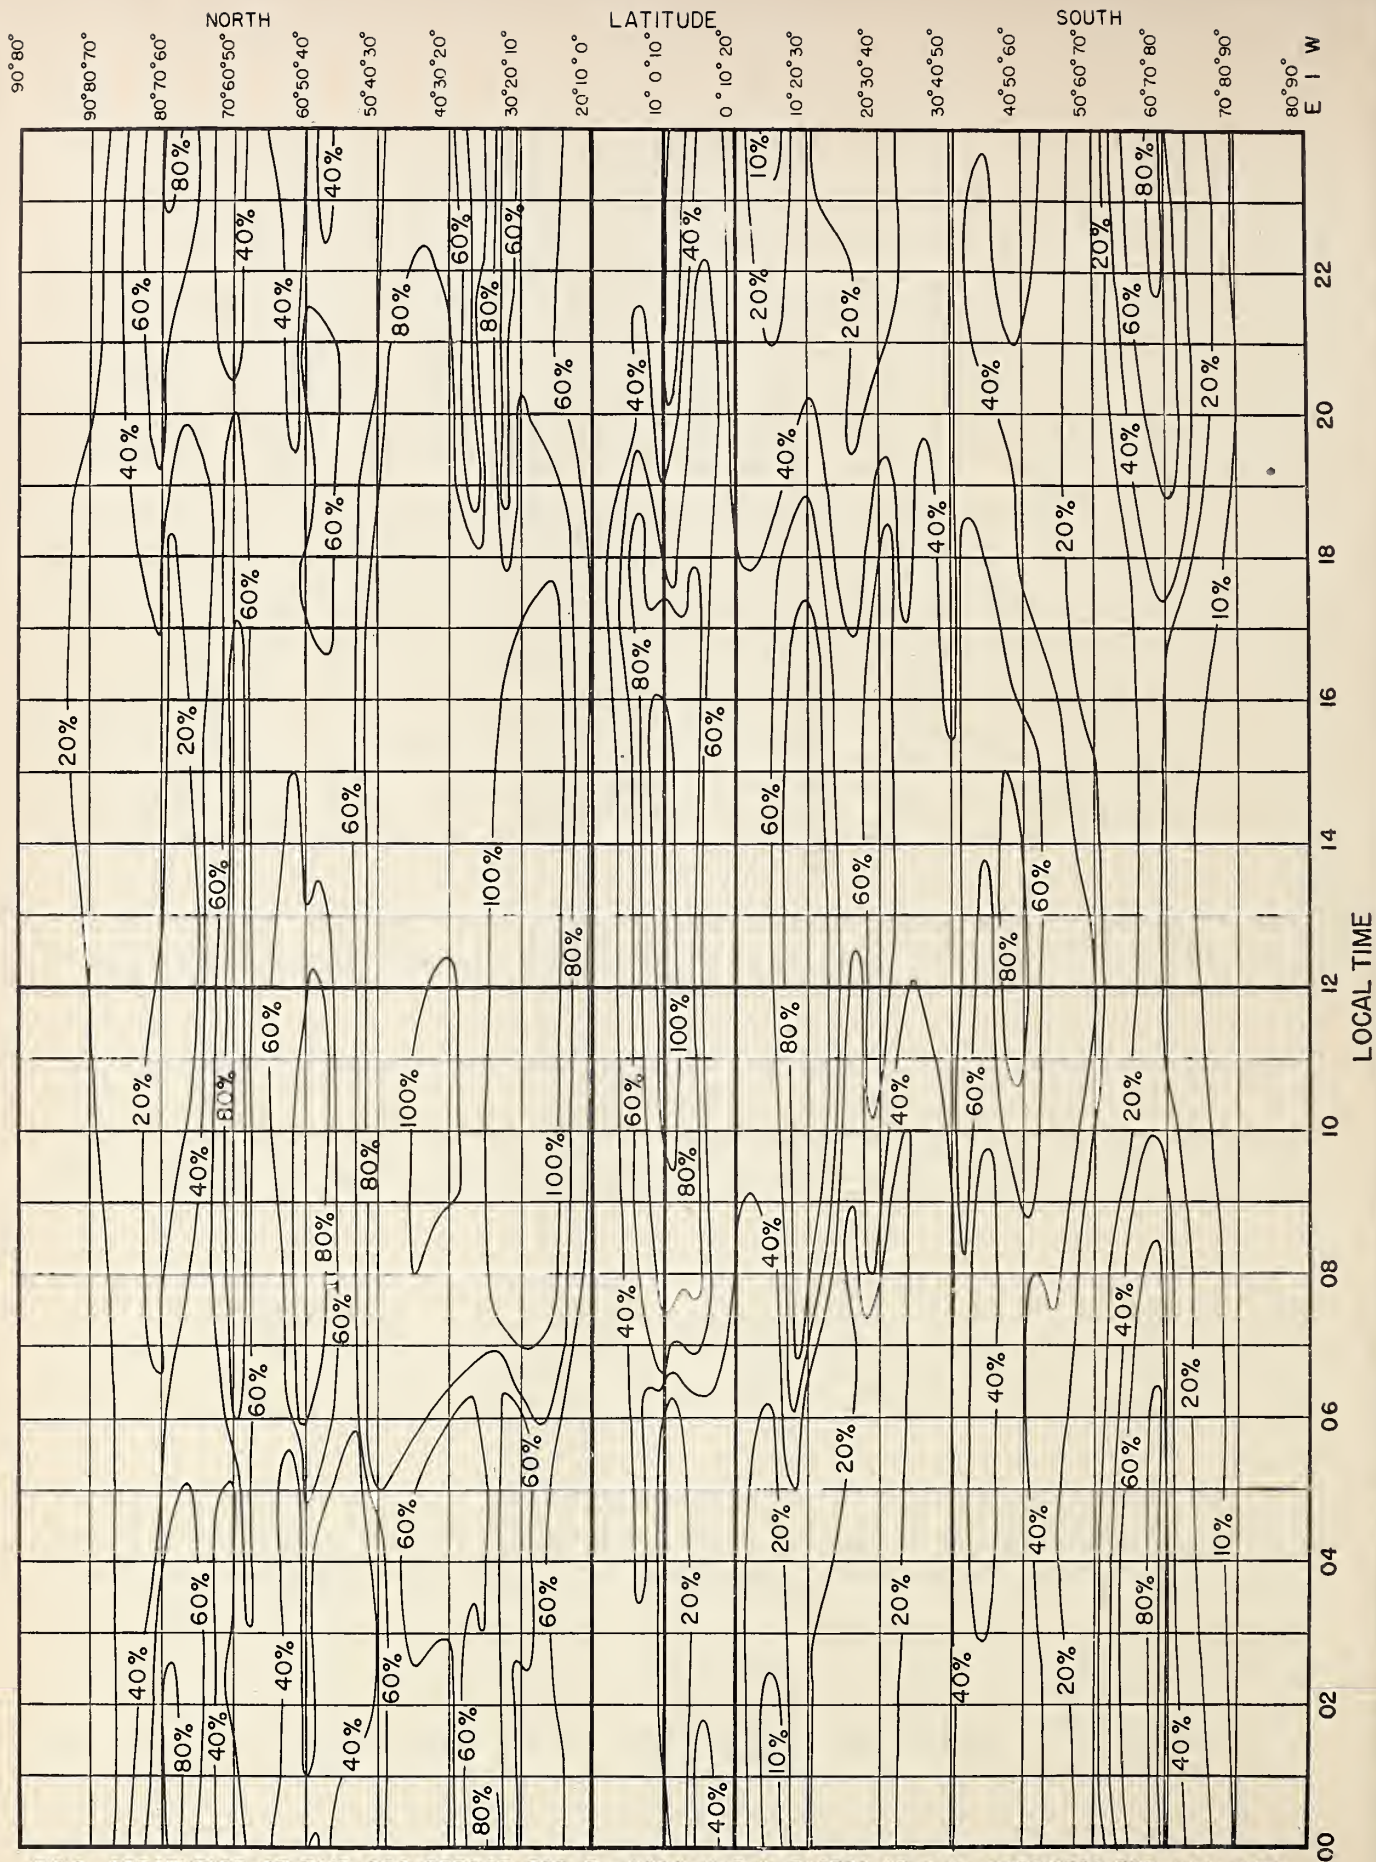 NORTH
LATITUDE
SOUTH
90° 80°
90° 80° 70°
80° 70° 60°
70° 60° 50°
60° 50° 40°
50° 40° 30°
40° 30° 20°
30° 20° 10°
20° 10° 0°
10° 0° 10°
0° 10° 20°
10° 20° 30°
20° 30° 40°
30° 40° 50°
40° 50° 60°
50° 60° 70°
60° 70° 80°
70° 80° 90°
80° 90°
E I W
80%
40%
10%
80%
40%
60%
60%
40%
20%
60%
40%
80%
80%
20%
20%
60%
22
40%
60%
40%
40%
20%
20
40%
40%
60%
40%
20%
18
60%
80%
10%
20%
20%
60%
16
60%
60%
60%
100%
60%
60%
14
80%
80%
12
60%
100%
80%
20%
80%
100%
60%
40%
60%
20%
10
40%
80%
100%
80%
80%
40%
08
60%
40%
40%
60%
40%
20%
06
60%
20%
60%
60%
20%
40%
10%
04
60%
60%
20%
20%
80%
40%
40%
60%
40%
20%
02
80%
40%
40%
60%
10%
40%
80%
40%
00
LOCAL TIME